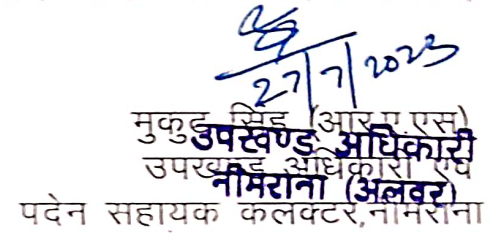 27/7/2023
मुकुट सिंह (आर.ए.एस)
उपखण्ड अधिकारी
उपखण्ड अधिकारी एवं
नीमराना (अलवर)
पदेन सहायक कलक्टर,नीमराना